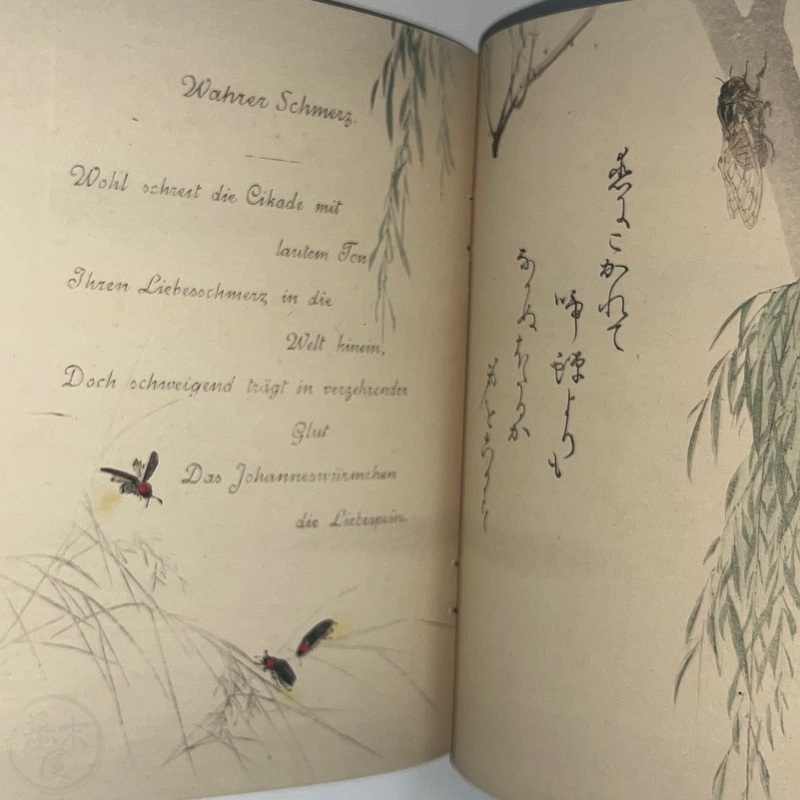 Wahrer Schmerz.
Wohl schreit die Cikade mit
lautem Ton
Ihren Liebesschmerz in die
Welt hinein,
Doch schweigend trägt in verzehrender
Glut
Das Johanneswürmchen
die Liebespein.
恋にこかれて
啼蝉よりも
なかぬほたるか
身をこかす